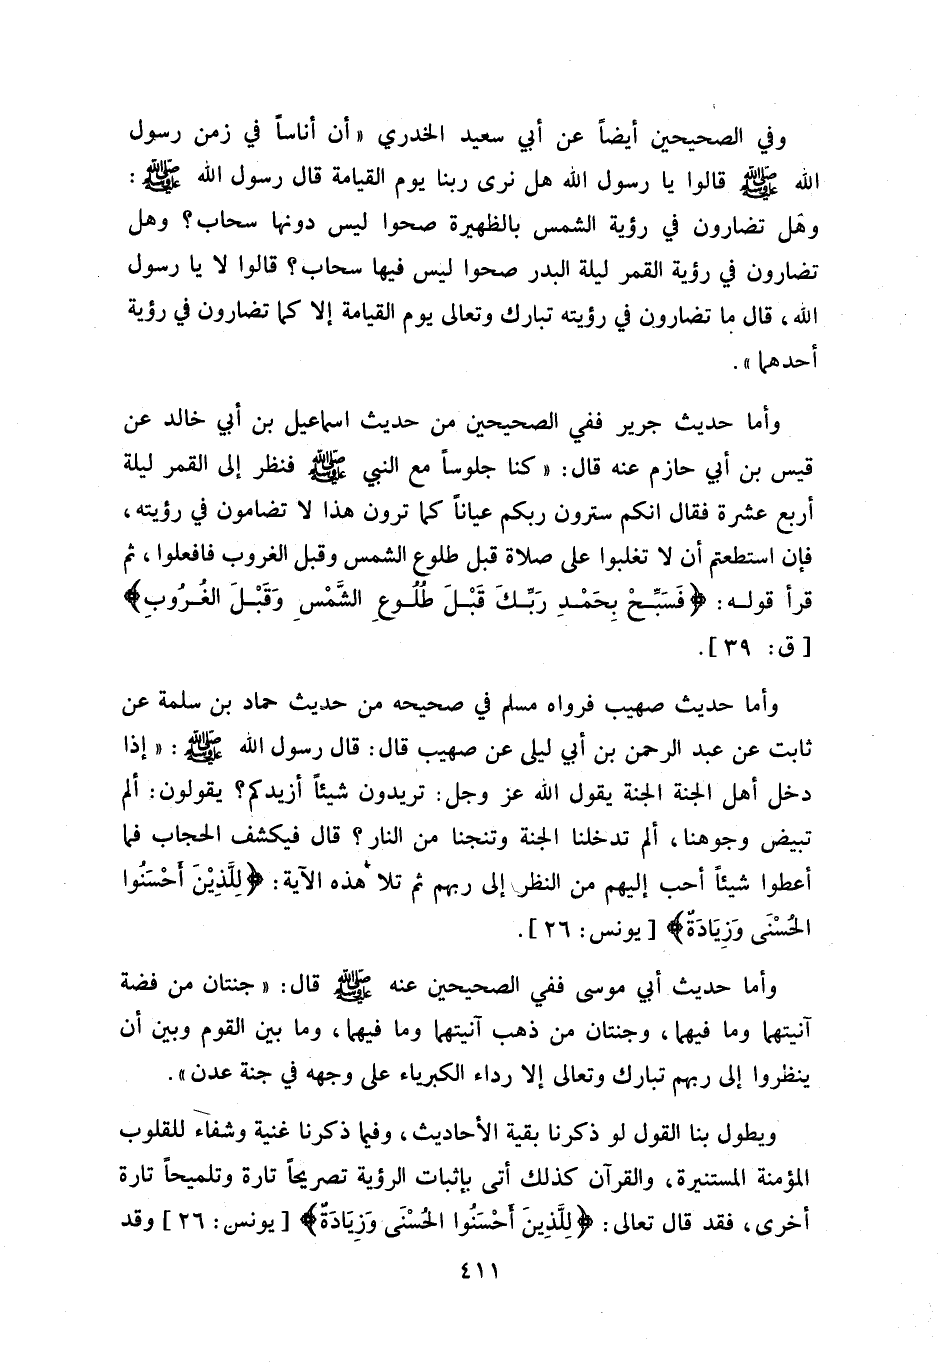 وفي الصحيحين أيضاً عن أبي سعيد الخدري « أن أناساً في زمن رسول
الله ﷺ قالوا يا رسول الله هل نرى ربنا يوم القيامة قال رسول الله ﷺ :
وهَل تضارون في رؤية الشمس بالظهيرة صحوا ليس دونها سحاب؟ وهل
تضارون في رؤية القمر ليلة البدر صحوا ليس فيها سحاب؟ قالوا لا يا رسول
الله، قال ما تضارون في رؤيته تبارك وتعالى يوم القيامة إلا كما تضارون في رؤية
أحدهما ».
وأما حديث جرير ففي الصحيحين من حديث اسماعيل بن أبي خالد عن
قيس بن أبي حازم عنه قال: « كنا جلوساً مع النبي ﷺ فنظر إلى القمر ليلة
أربع عشرة فقال انكم سترون ربكم عياناً كما ترون هذا لا تضامون في رؤيته،
فإن استطعتم أن لا تغلبوا على صلاة قبل طلوع الشمس وقبل الغروب فافعلوا، ثم
قرأ قوله: ﴿فَسَبِّحْ بِحَمْدِ رَبِّكَ قَبْلَ طُلُوعِ الشَّمْسِ وَقَبْلَ الغُرُوبِ﴾
[ ق: ٣٩ ].
وأما حديث صهيب فرواه مسلم في صحيحه من حديث حماد بن سلمة عن
ثابت عن عبد الرحمن بن أبي ليلى عن صهيب قال: قال رسول الله ﷺ : « إذا
دخل أهل الجنة الجنة يقول الله عز وجل: تريدون شيئاً أزيدكم؟ يقولون: ألم
تبيض وجوهنا، ألم تدخلنا الجنة وتنجنا من النار؟ قال فيكشف الحجاب فما
أعطوا شيئاً أحب إليهم من النظر إلى ربهم ثم تلا هذه الآية: ﴿لِلَّذِيْنَ أَحْسَنُوا
الحُسْنَى وَزِيَادَةٌ﴾ [ يونس: ٢٦ ].
وأما حديث أبي موسى ففي الصحيحين عنه ﷺ قال: « جنتان من فضة
آنيتهما وما فيهما، وجنتان من ذهب آنيتهما وما فيهما، وما بين القوم وبين أن
ينظروا إلى ربهم تبارك وتعالى إلا رداء الكبرياء على وجهه في جنة عدن ».
ويطول بنا القول لو ذكرنا بقية الأحاديث، وفيما ذكرنا غنية وشفاء للقلوب
المؤمنة المستنيرة، والقرآن كذلك أتى بإثبات الرؤية تصريحاً تارة وتلميحاً تارة
أخرى، فقد قال تعالى: ﴿لِلَّذِينَ أَحْسَنُوا الحُسْنَى وَزِيَادَةٌ﴾ [ يونس: ٢٦ ] وقد
٤١١